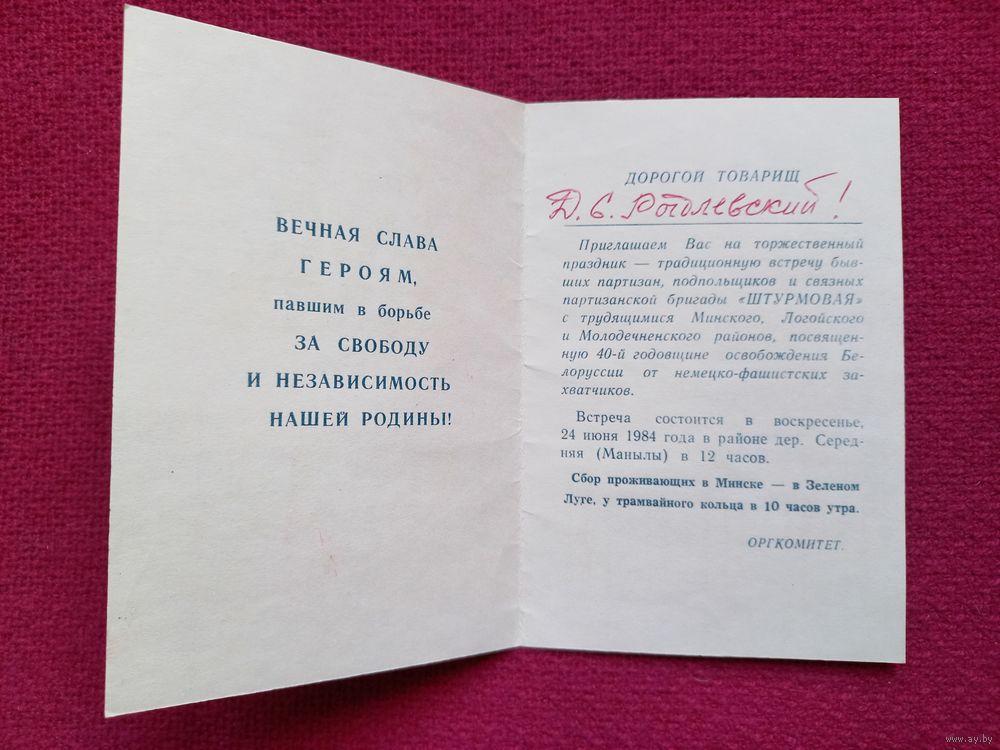 ВЕЧНАЯ СЛАВА
ГЕРОЯМ,
павшим в борьбе
ЗА СВОБОДУ
И НЕЗАВИСИМОСТЬ
НАШЕЙ РОДИНЫ!
ДОРОГОЙ ТОВАРИЩ
Д. С.
Приглашаем Вас на торжественный
праздник — традиционную встречу быв-
ших партизан, подпольщиков и связных
партизанской бригады «ШТУРМОВАЯ»
с трудящимися Минского, Логойского
и Молодечненского районов, посвящен-
ную 40-й годовщине освобождения Бе-
лоруссии от немецко-фашистских за-
хватчиков.
Встреча состоится в воскресенье,
24 июня 1984 года в районе дер. Серед-
няя (Манылы) в 12 часов.
Сбор проживающих в Минске — в Зеленом
Луге, у трамвайного кольца в 10 часов утра.
ОРГКОМИТЕТ.
www.ay.by